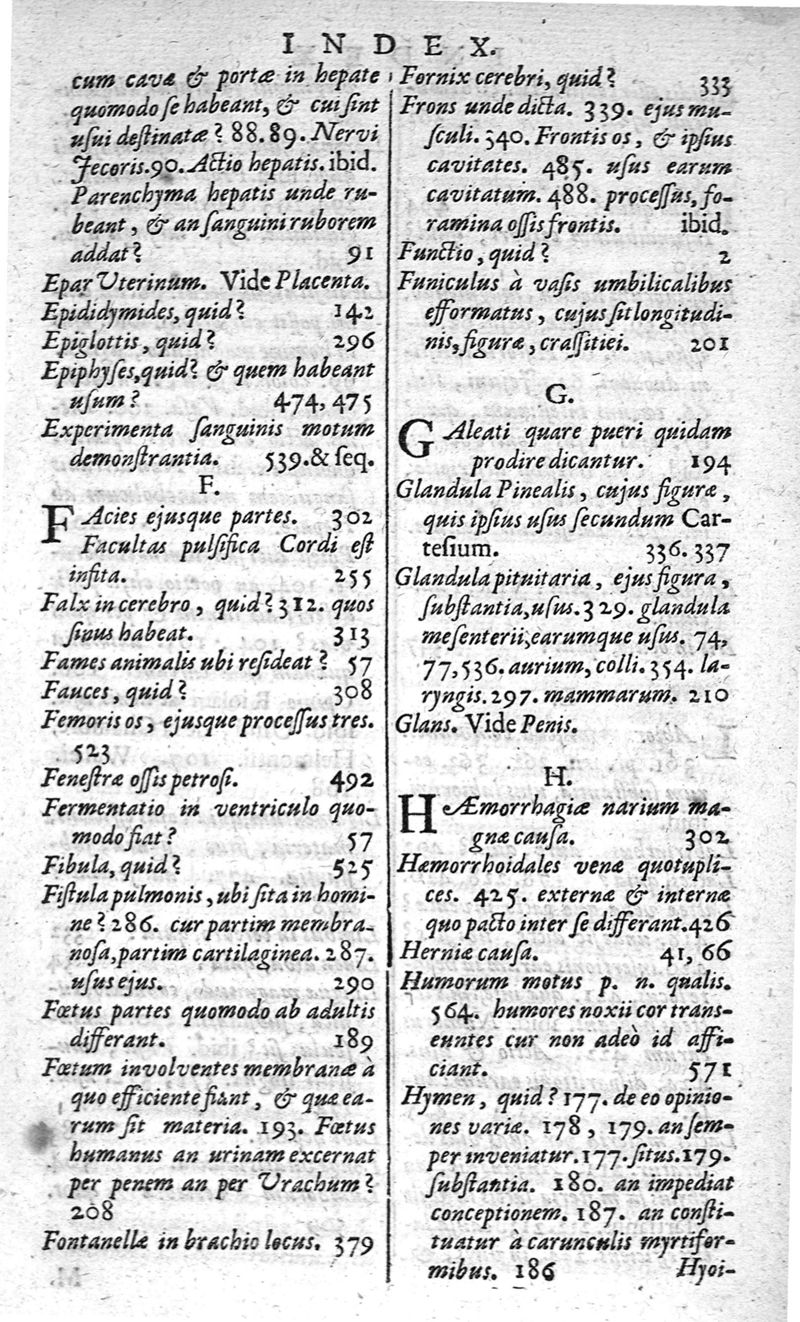 INDEX.
cum cavæ & portæ in hepate
quomodo ſe habeant, & cui ſint
uſui deſtinatæ? 88. 89. Nervi
Jecoris. 90. Actio hepatis. ibid.
Parenchyma hepatis unde ru-
beant, & an ſanguini ruborem
addat? 91
Epar Uterinum. Vide Placenta.
Epididymides, quid? 142
Epiglottis, quid? 296
Epiphyſes, quid? & quem habeant
uſum? 474, 475
Experimenta ſanguinis motum
demonſtrantia. 539. & ſeq.
F.
FAcies ejusque partes. 302
Facultas pulſifica Cordi eſt
inſita. 255
Falx in cerebro, quid? 312. quos
ſinus habeat. 313
Fames animalis ubi reſideat? 57
Fauces, quid? 308
Femoris os, ejusque proceſſus tres.
523
Feneſtræ oſſis petroſi. 492
Fermentatio in ventriculo quo-
modo fiat? 57
Fibula, quid? 525
Fiſtula pulmonis, ubi ſita in homi-
ne? 286. cur partim membra-
noſa, partim cartilaginea. 287.
uſus ejus. 290
Fœtus partes quomodo ab adultis
differant. 189
Fœtum involventes membranæ à
quo efficiente fiant, & quæ ea-
rum ſit materia. 193. Fœtus
humanus an urinam excernat
per penem an per Urachum?
208
Fontanellæ in brachio locus. 379
Fornix cerebri, quid? 333
Frons unde dicta. 339. ejus mu-
ſculi. 340. Frontis os, & ipſius
cavitates. 485. uſus earum
cavitatum. 488. proceſſus, fo-
ramina oſſis frontis. ibid.
Functio, quid? 2
Funiculus à vaſis umbilicalibus
efformatus, cujus ſit longitudi-
nis, figuræ, craſſitiei. 201
G.
GAleati quare pueri quidam
prodire dicantur. 194
Glandula Pinealis, cujus figuræ,
quis ipſius uſus ſecundum Car-
teſium. 336. 337
Glandula pituitaria, ejus figura,
ſubſtantia, uſus. 329. glandula
meſenterii, earumque uſus. 74,
77, 536. aurium, colli. 354. la-
ryngis. 297. mammarum. 210
Glans. Vide Penis.
H.
HÆmorrhagiæ narium ma-
gnæ cauſa. 302
Hæmorrhoidales venæ quotupli-
ces. 425. externæ & internæ
quo pacto inter ſe differant. 426
Herniæ cauſa. 41, 66
Humorum motus p. n. qualis.
564. humores noxii cor trans-
euntes cur non adeò id affi-
ciant. 571
Hymen, quid? 177. de eo opinio-
nes variæ. 178, 179. an ſem-
per inveniatur. 177. ſitus. 179.
ſubſtantia. 180. an impediat
conceptionem. 187. an conſti-
tuatur à carunculis myrtifor-
mibus. 186 Hyoi-